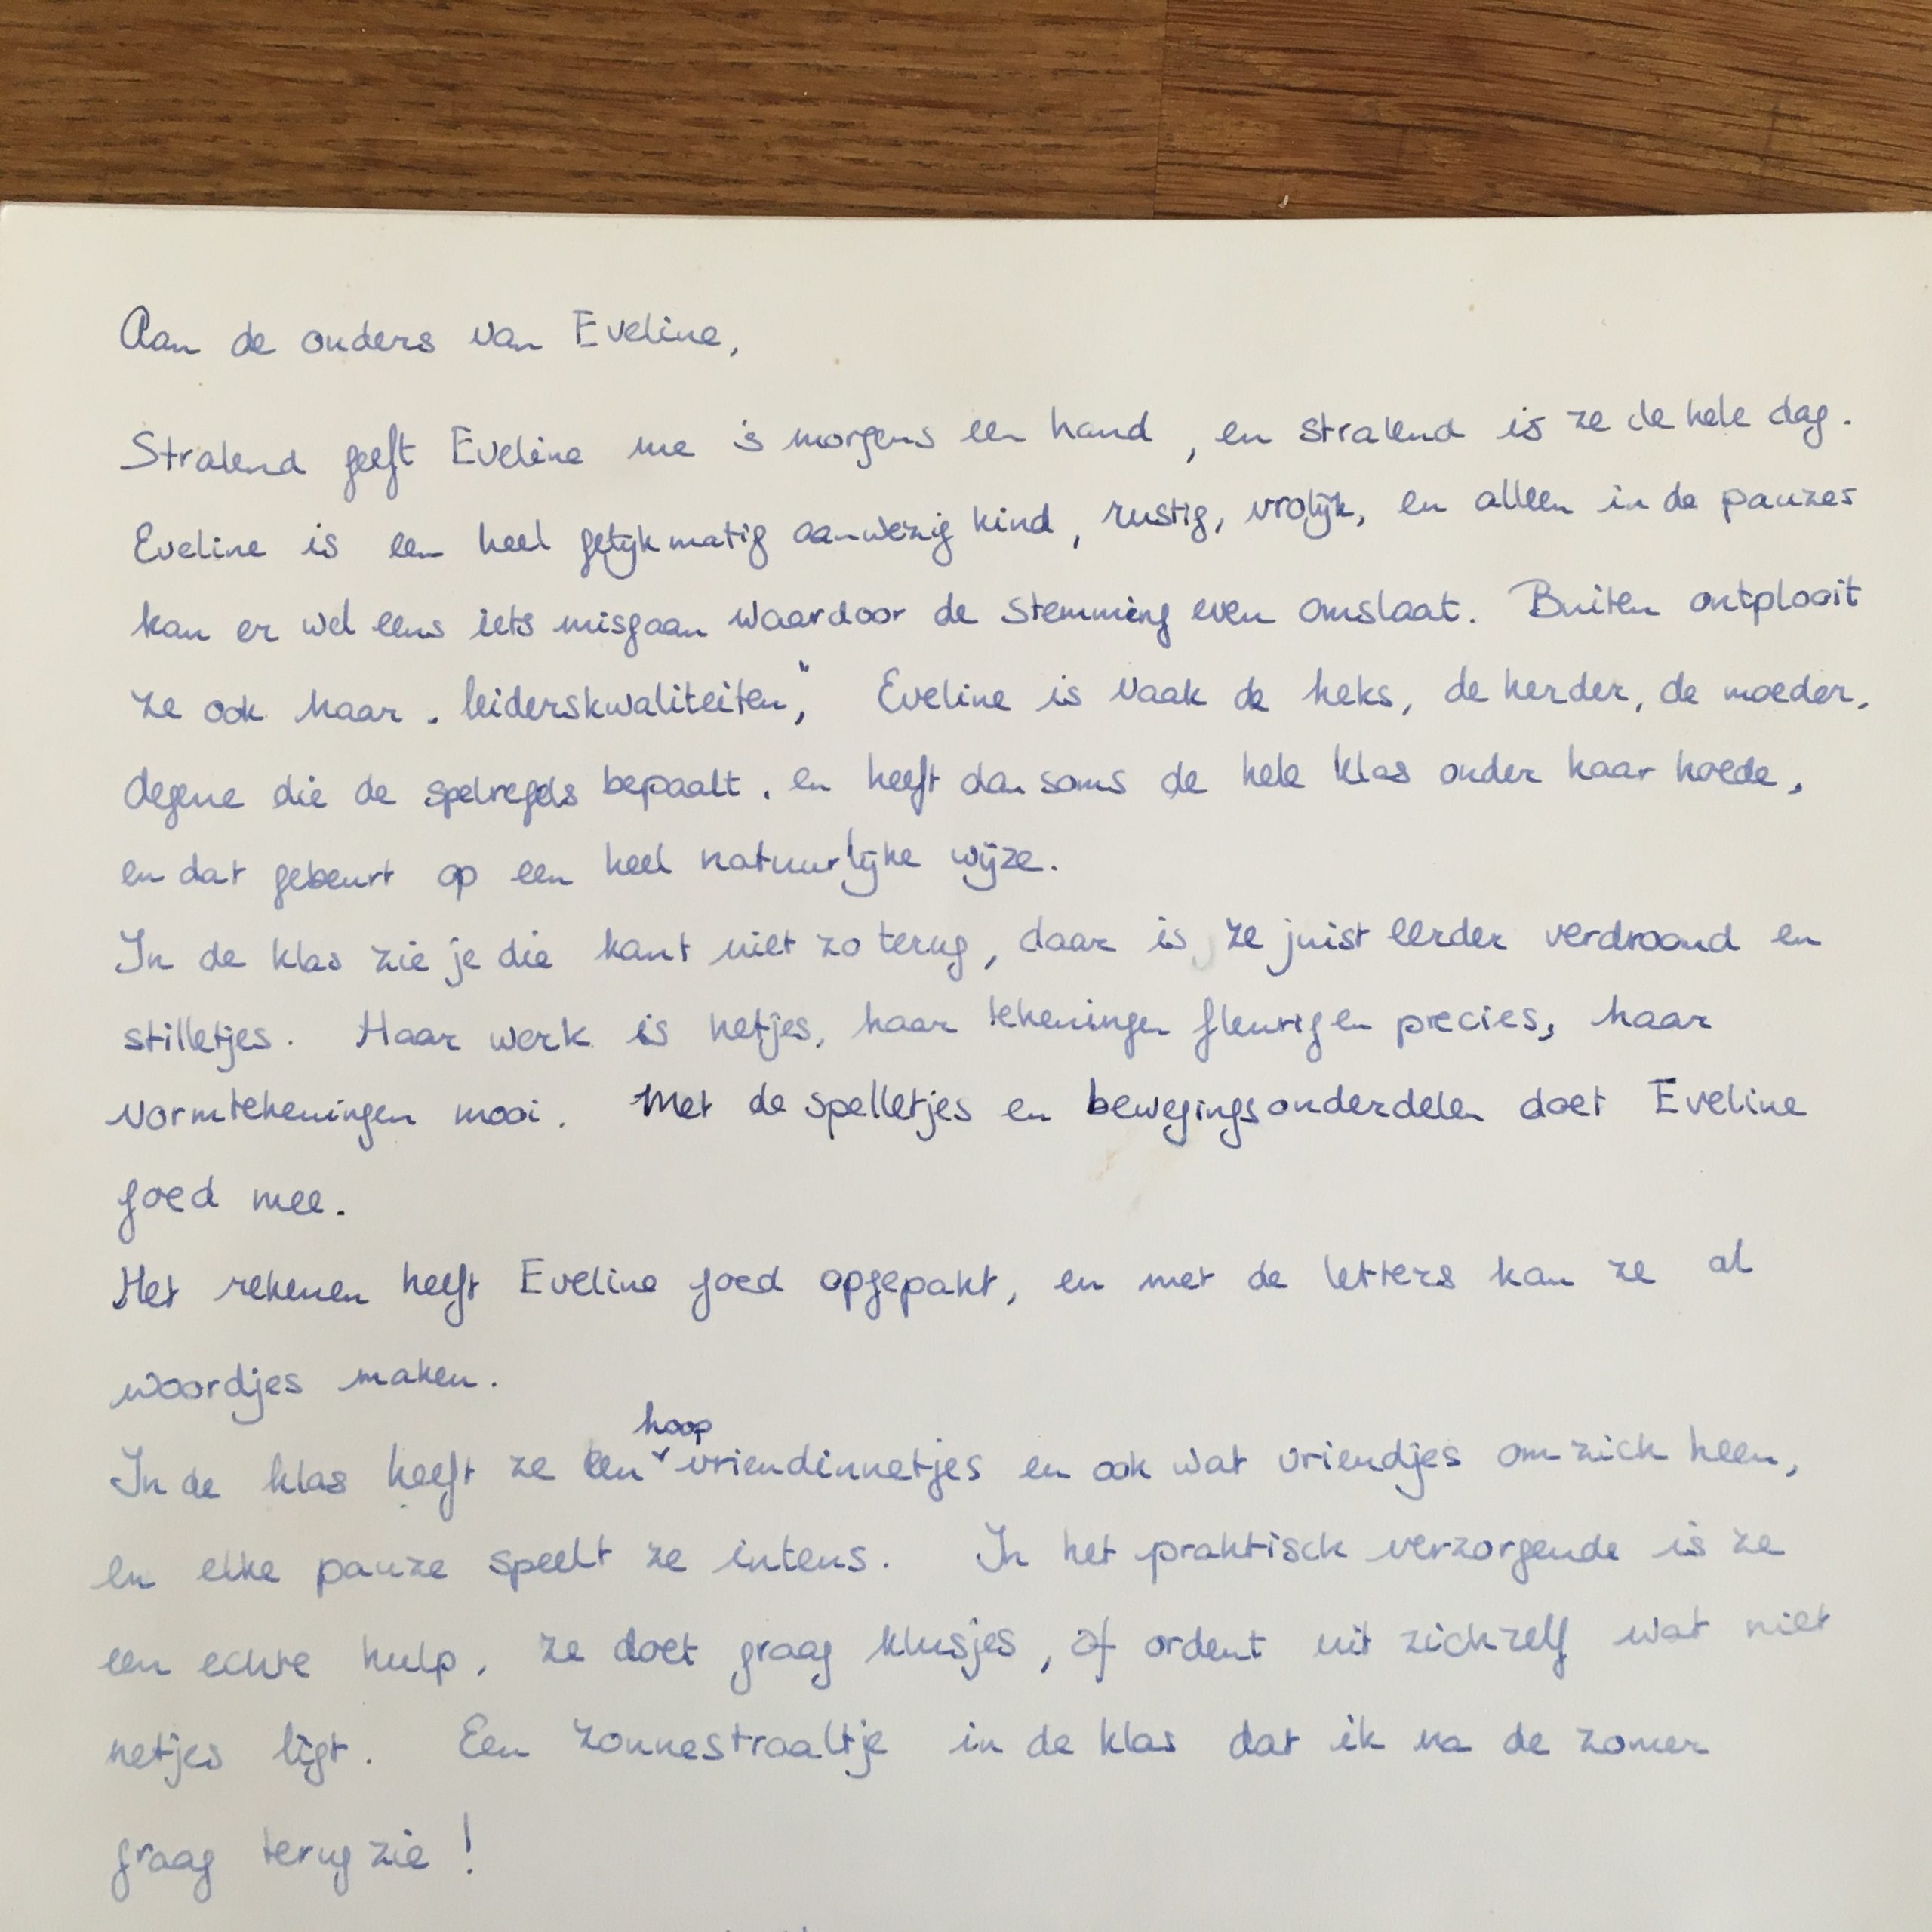 Aan de ouders van Eveline,
Stralend geeft Eveline me 's morgens een hand, en stralend is ze de hele dag.
Eveline is een heel gelijkmatig aanwezig kind, rustig, vrolijk, en alleen in de pauzes
kan er wel eens iets misgaan waardoor de stemming even omslaat. Buiten ontplooit
ze ook haar "leiderskwaliteiten", Eveline is vaak de heks, de herder, de moeder,
degene die de spelregels bepaalt, en heeft dan soms de hele klas onder haar hoede,
en dat gebeurt op een heel natuurlijke wijze.
In de klas zie je die kant niet zo terug, daar is ze juist eerder verdroomd en
stilletjes. Haar werk is netjes, haar tekeningen fleurig en precies, haar
vormtekeningen mooi. Met de spelletjes en bewegingsonderdelen doet Eveline
goed mee.
Het rekenen heeft Eveline goed opgepakt, en met de letters kan ze al
woordjes maken.
In de klas heeft ze een hoop vriendinnetjes en ook wat vriendjes om zich heen,
en elke pauze speelt ze intens. In het praktisch verzorgende is ze
een echte hulp, ze doet graag klusjes, of ordent uit zichzelf wat niet
netjes ligt. Een zonnestraaltje in de klas dat ik na de zomer
graag terug zie!